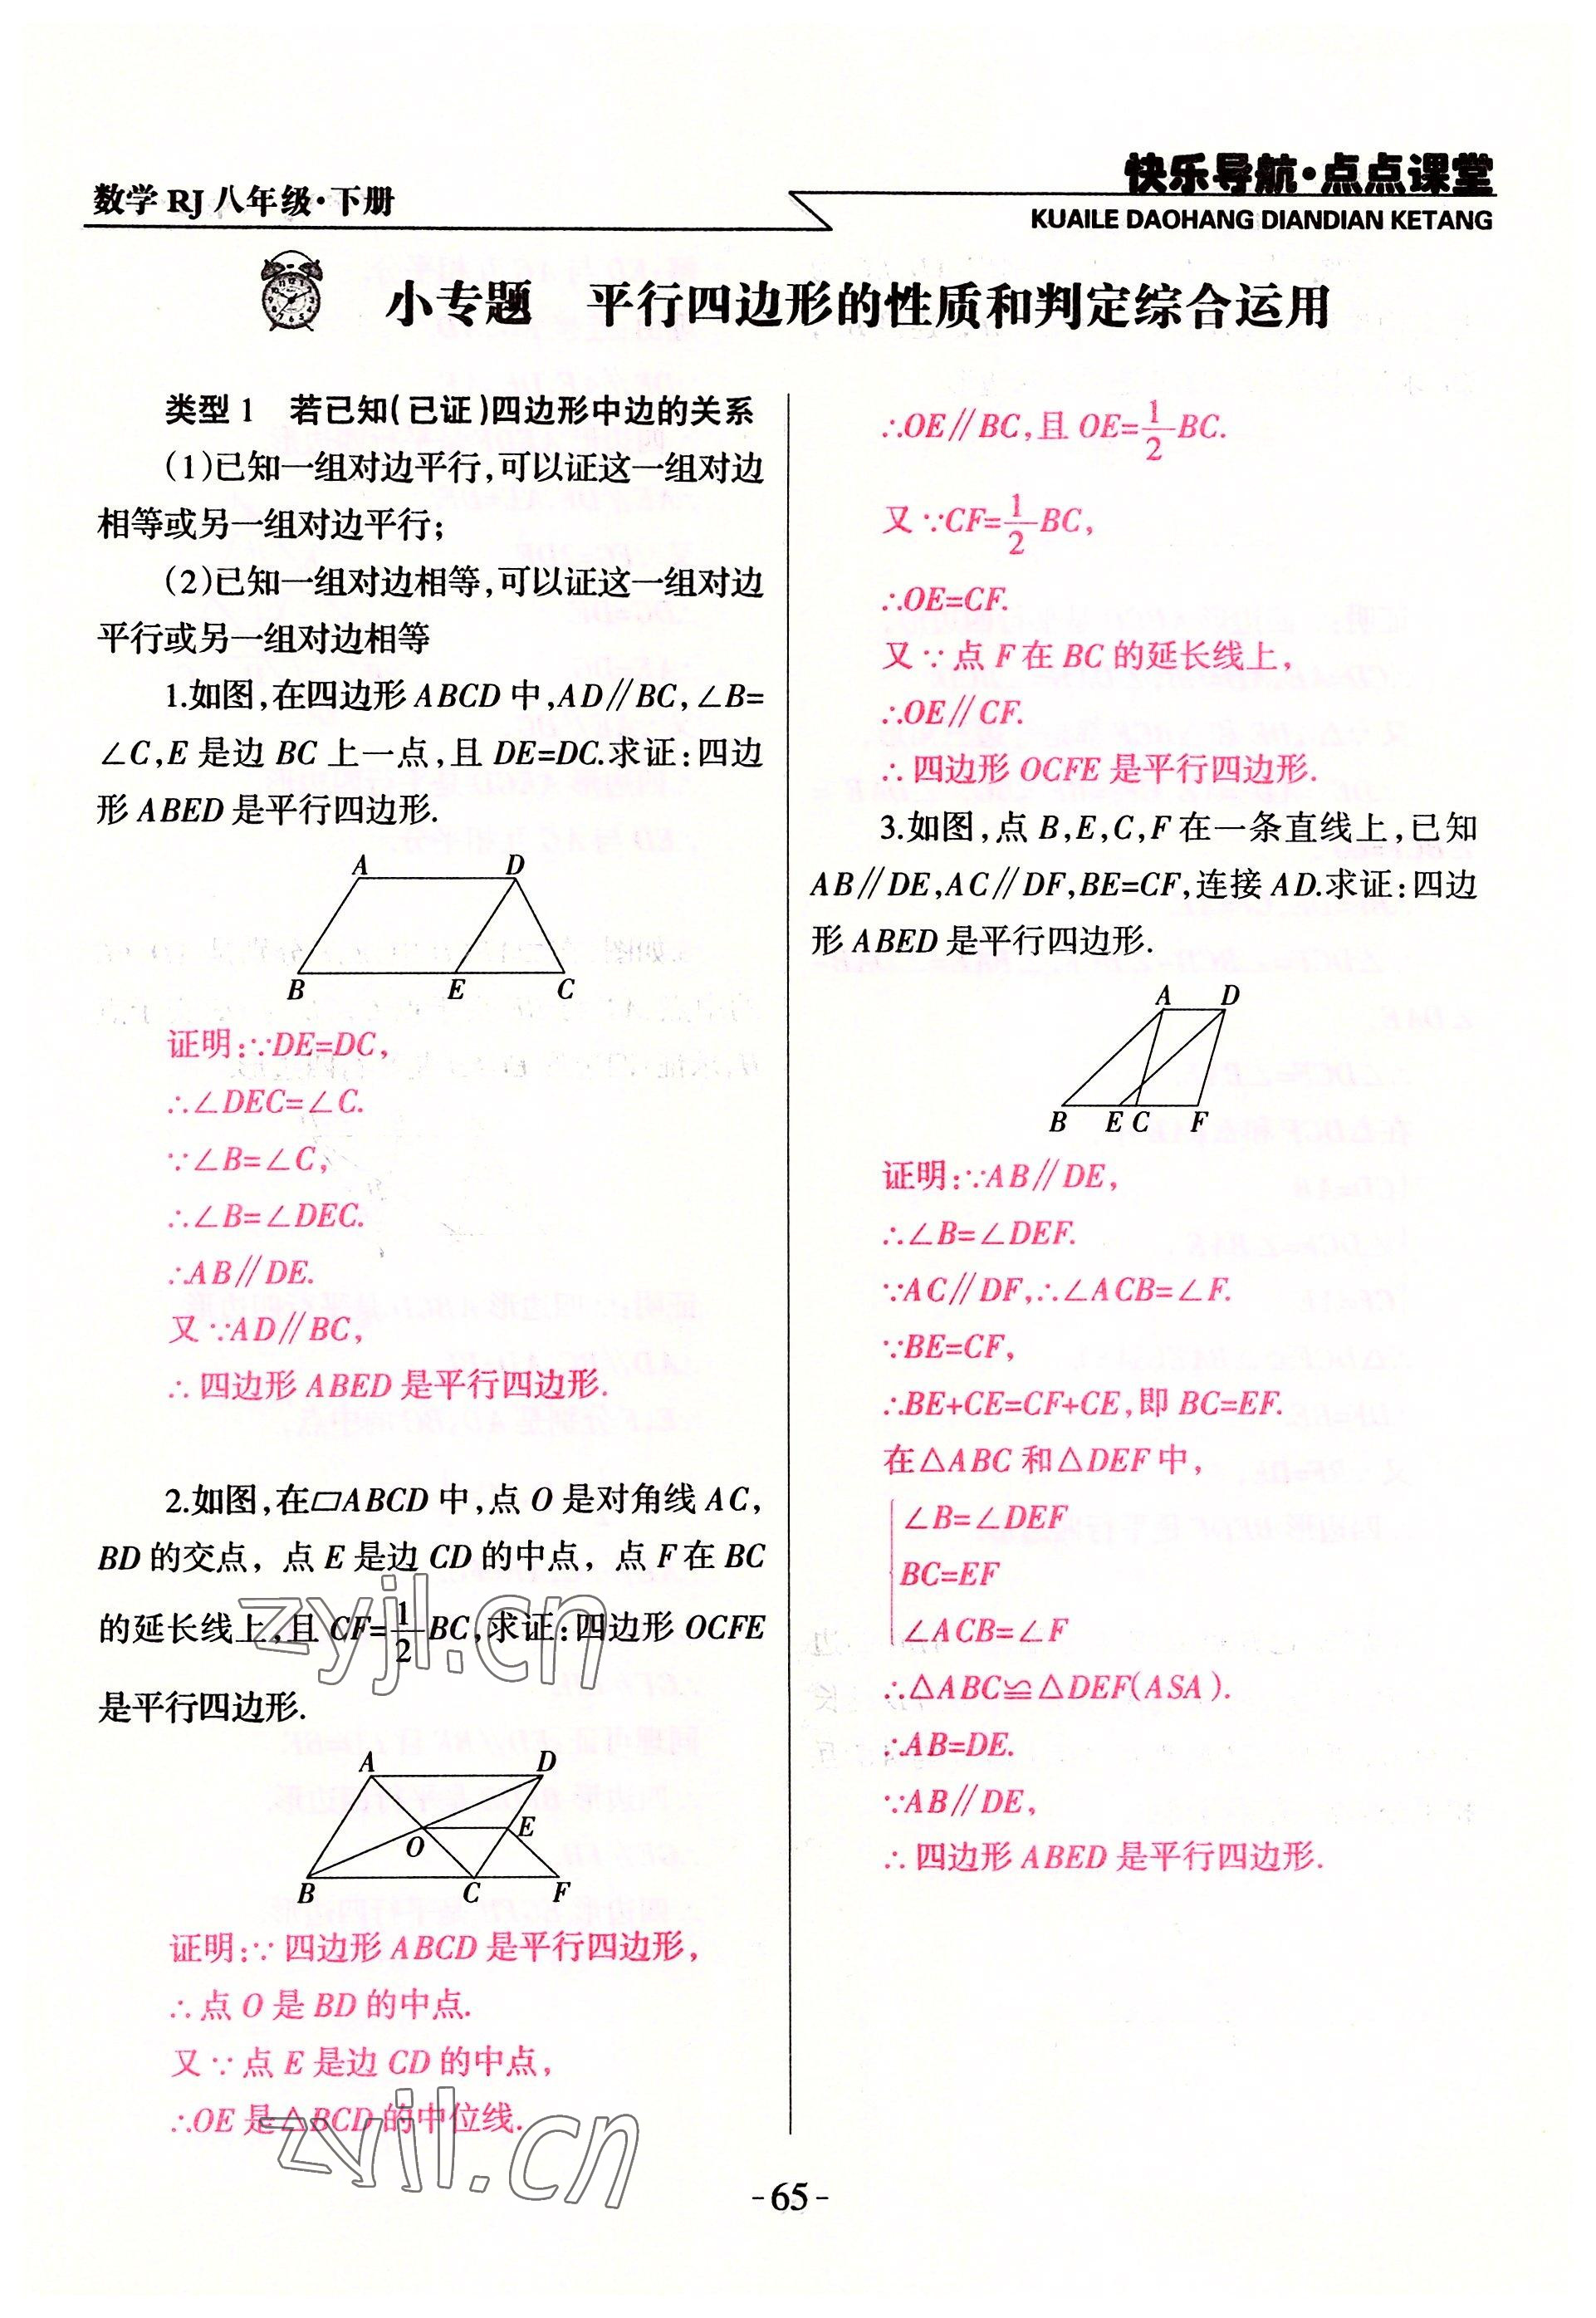 数学 RJ 八年级·下册
快乐导航·点点课堂
KUAILE DAOHANG DIANDIAN KETANG
小专题 平行四边形的性质和判定综合运用
类型 1 若已知(已证)四边形中边的关系
(1)已知一组对边平行,可以证这一组对边
相等或另一组对边平行;
(2)已知一组对边相等,可以证这一组对边
平行或另一组对边相等
1.如图,在四边形 ABCD 中,AD∥BC,∠B=
∠C,E 是边 BC 上一点,且 DE=DC.求证:四边
形 ABED 是平行四边形.
A D
B E C
证明:∵DE=DC,
∴∠DEC=∠C.
∵∠B=∠C,
∴∠B=∠DEC.
∴AB∥DE.
又∵AD∥BC,
∴四边形 ABED 是平行四边形.
2.如图,在▱ABCD 中,点 O 是对角线 AC,
BD 的交点, 点 E 是边 CD 的中点, 点 F 在 BC
的延长线上,且 CF=1/2BC,求证:四边形 OCFE
是平行四边形.
A D
O E
B C F
证明:∵四边形 ABCD 是平行四边形,
∴点 O 是 BD 的中点.
又∵点 E 是边 CD 的中点,
∴OE 是△BCD 的中位线.
∴OE∥BC,且 OE=1/2BC.
又∵CF=1/2BC,
∴OE=CF.
又∵点 F 在 BC 的延长线上,
∴OE∥CF.
∴四边形 OCFE 是平行四边形.
3.如图,点 B,E,C,F 在一条直线上,已知
AB∥DE,AC∥DF,BE=CF,连接 AD.求证:四边
形 ABED 是平行四边形.
A D
B E C F
证明:∵AB∥DE,
∴∠B=∠DEF.
∵AC∥DF,∴∠ACB=∠F.
∵BE=CF,
∴BE+CE=CF+CE,即 BC=EF.
在△ABC 和△DEF 中,
∠B=∠DEF
BC=EF
∠ACB=∠F
∴△ABC≌△DEF(ASA).
∴AB=DE.
∵AB∥DE,
∴四边形 ABED 是平行四边形.
zyjl.cn
zyjl.cn
-65-